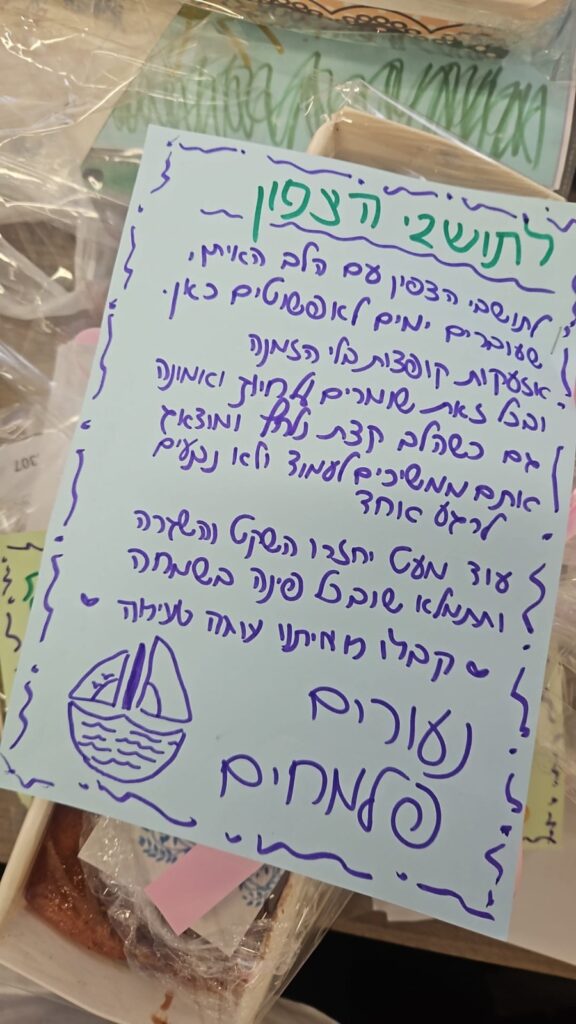 לתושבי הצפון
לתושבי הצפון עם הלב האיתן,
שעוברים ימים לא פשוטים כאן.
אזעקות קופצות בלי הזמנה
ובכל זאת שומרים על חיוך ואמונה
גם כשהלב קצת נלחץ ומוצאג
אתם ממשיכים לעמוד ולא נכנעים
לרגע אחד
עוד מעט יחזרו השקט והשגרה
ותתמלא שוב כל פינה בשמחה
קבלו מאיתנו עוגה טעימה
נעורים
פלמחים
307